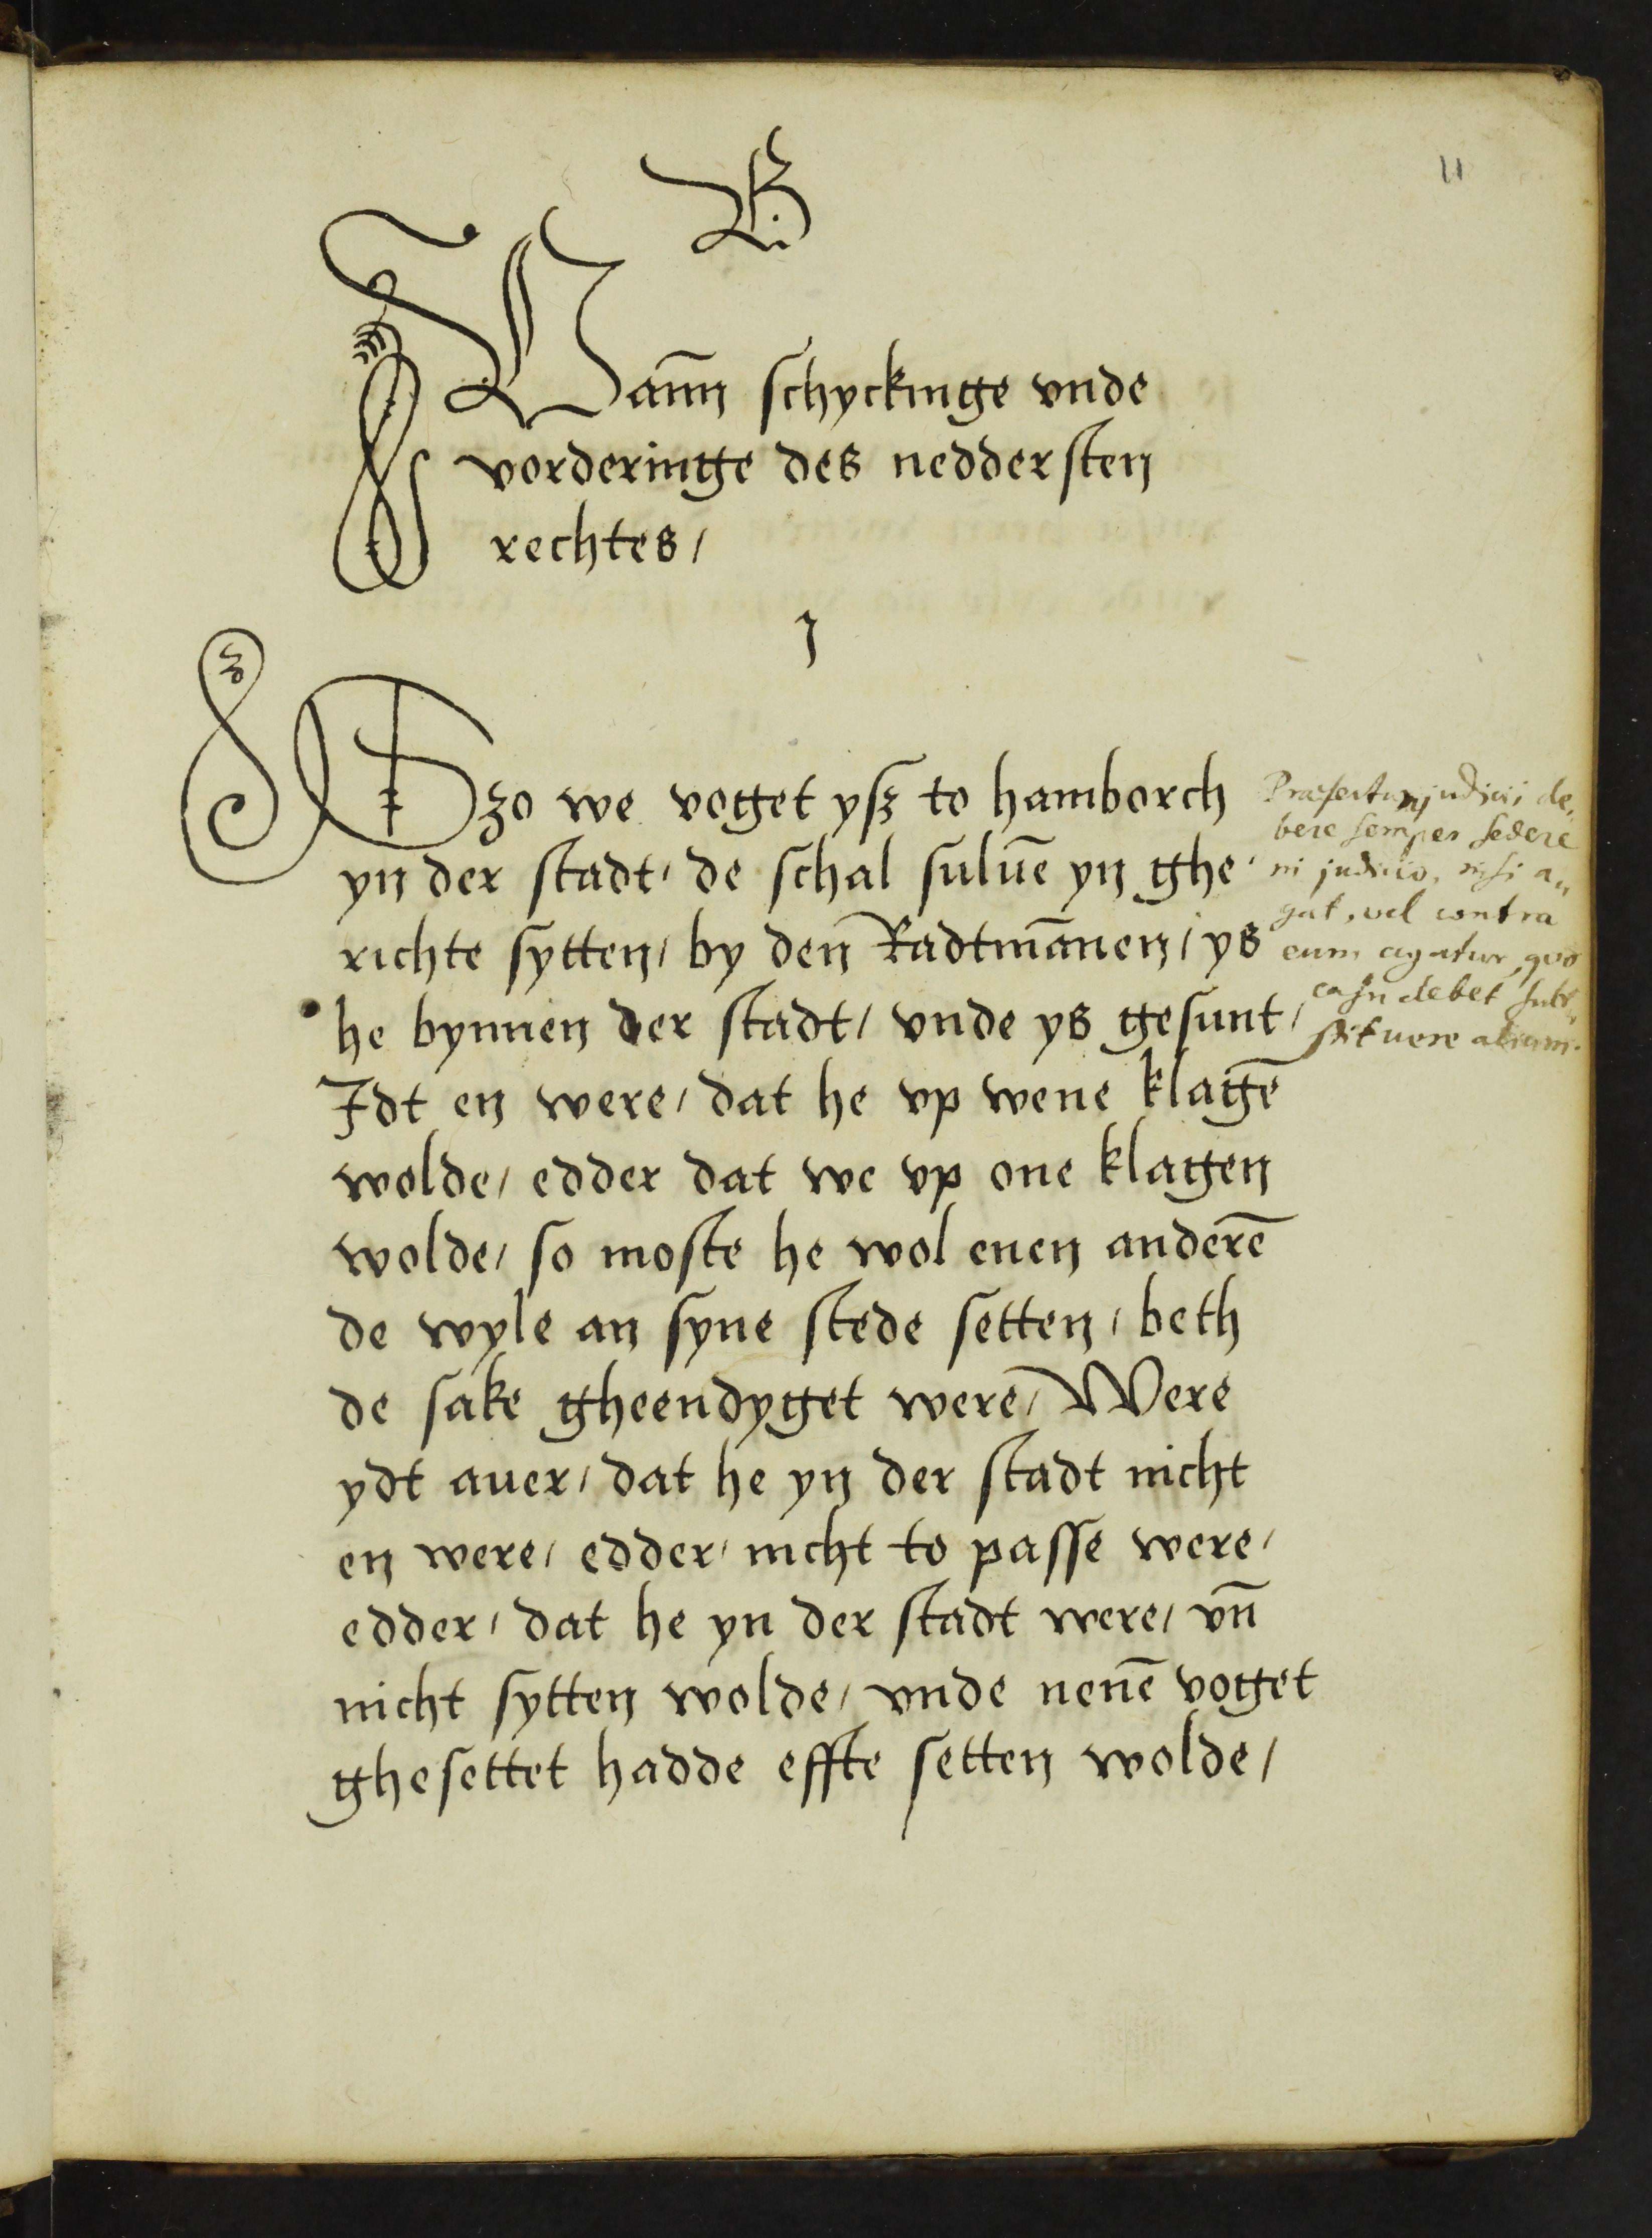 11
B
Vann schyckinge vnde
vorderinge des neddersten
rechtes /
j
Szo we voget ysz to hamborch
yn der stadt / de schal suluē yn ghe
richte sytten / by den Radtmānen / ys
he bynnen der stadt / vnde ys gesunt /
Idt en were / dat he vp wene klagē
wolde / edder dat we vp one klagen
wolde / so moste he wol enen anderē
de wyle an syne stede setten / beth
de sake gheendyget were / Were
ydt auer / dat he yn der stadt nicht
en were / edder / nicht to passe were /
edder / dat he yn der stadt were / vn̄
nicht sytten wolde / vnde nenē voget
ghesettet hadde effte setten wolde /
Præfectum judicii de„
bere semper sedere
in judicio, nisi a„
gat, vel contra
eum agatur, quo
casu debet sub„
stituere alium.